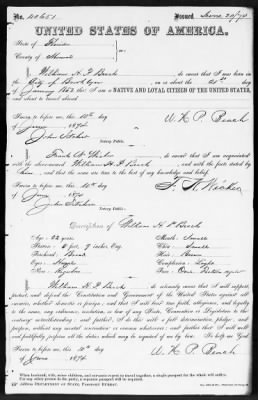 No. 40651.
Issued June 20/74
UNITED STATES OF AMERICA.
State of
County of
I William H. P. Beach, do swear that I was born in
the City of Brooklyn on or about the 21st day
of January 1852; that I am a NATIVE AND LOYAL CITIZEN OF THE UNITED STATES,
and about to travel abroad.
Sworn to before me, this 10th day
of June 1874
W. H. P. Beach
Notary Public.
I Frank, do swear that I am acquainted
with the above-named William H. P. Beach, and with the facts stated by
him, and that the same are true to the best of my knowledge and belief.
Sworn to before me, this 10th day
of June 1874
Notary Public.
Description of William H. P. Beach
Age: 22 years Mouth: Small
Stature: 5 feet 7 inches Eng. Chin: Small
Forehead: Broad Hair: Brown
Eyes: Complexion: Light
Nose: Regular Face:
I William H. P. Beach do solemnly swear that I will support,
protect, and defend the Constitution and Government of the United States against all
enemies, whether domestic or foreign; and that I will bear true faith, allegiance, and loyalty
to the same, any ordinance, resolution, or law of any State, Convention or Legislature to the
contrary notwithstanding; and further, that I do this with a full determination, pledge, and
purpose, without any mental reservation or evasion whatsoever; and further, that I will well
and faithfully perform all the duties which may be required of me by law. So help me God.
Sworn to before me, this 10th day
of June 1874
W. H. P. Beach
When husband, wife, minor children, and servants expect to travel together, a single passport for the whole will suffice.
For any other person in the party, a separate passport will be required.
Address DEPARTMENT OF STATE, PASSPORT BUREAU.